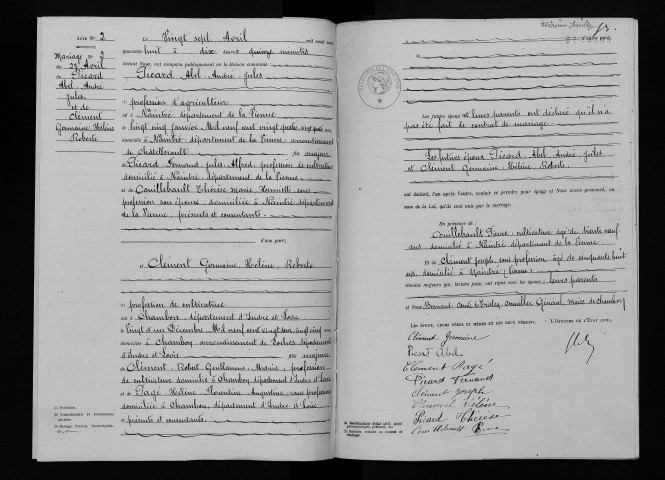 ACTE N° 2
Mariage N° 2
du 27 Avril
de Picard
Abel André
Jules
et de
Clément
Germaine Hélène
Roberte
Le Vingt sept Avril mil neuf cent
quarante huit à dix heures quinze minutes
devant Nous, ont comparu publiquement en la Maison commune
Picard Abel André Jules
profession d'agriculteur
né à Naintré département de la Vienne
le vingt cinq janvier Mil neuf cent vingt quatre
domicilié à Naintré département de la Vienne arrondissement
de Châtellerault fils majeur
de Picard Fernand Jules Alfred profession de cultivateur
domicilié à Naintré département de la Vienne
et de Couillebault Thérèse Marie Henriette sans
profession son épouse domiciliée à Naintré département
de la Vienne, présents et consentants
d'une part;
et Clément Germaine Hélène Roberte
profession de cultivatrice
née à Chambon, département d'Indre et Loire
le vingt et un Décembre Mil neuf cent vingt
domiciliée à Chambon arrondissement de Loches département
d'Indre et Loire fille majeure
de Clément Robert Guillaume Marie profession
de cultivateur domicilié à Chambon département d'Indre et Loire
et de Pagé Hélène Florentine Augustine sans profession
domiciliée à Chambon, département d'Indre et Loire
présents et consentants
(1) Profession.
Les futurs époux et leurs parents ont déclaré qu'il n'a
pas été fait de contrat de mariage
Les futurs époux Picard Abel André Jules
et Clément Germaine Hélène Roberte
ont déclaré, l'un après l'autre, vouloir se prendre pour époux et Nous avons prononcé, au
nom de la Loi, qu'ils sont unis par le mariage.
En présence de
Couillebault Pierre cultivateur âgé de trente neuf
ans domicilié à Naintré département de la Vienne
Et de Clément Joseph, sans profession âgé de cinquante huit
ans domicilié à Naintré (Vienne)
témoins majeurs qui, lecture faite, ont signé avec les époux, leurs parents
et Nous Bernard Conseiller Général, Maire de Chambon
LES ÉPOUX, LEURS PÈRES ET MÈRES ET LES DEUX TÉMOINS. L'OFFICIER DE L'ÉTAT CIVIL,
Clément Germaine
Picard Abel
Clément Pagé
Picard Fernand
Clément Joseph
Clément Hélène
Picard Thérèse
Couillebault Pierre